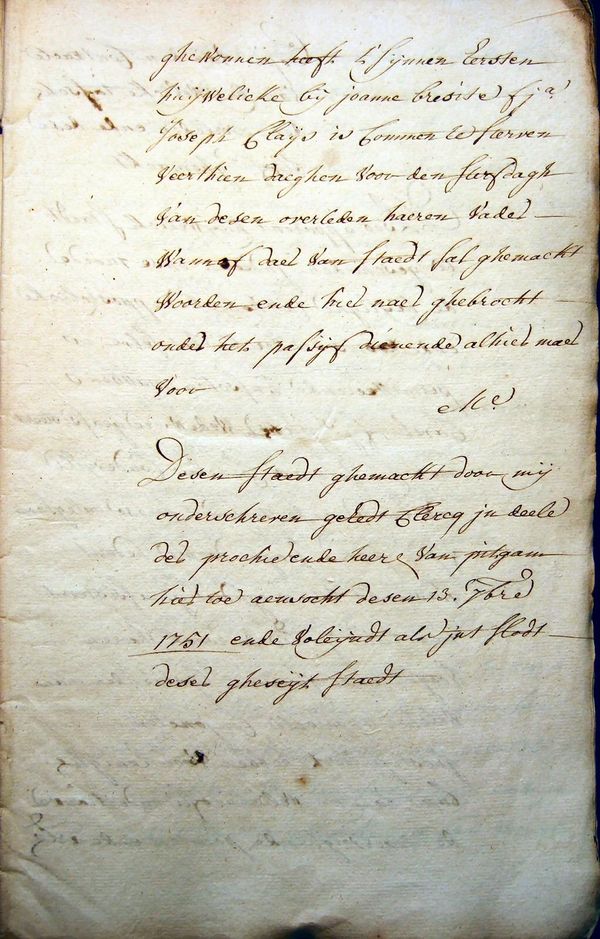 ghewonnen heeft t'sijnnen Eersten
huijwelicke bij joanne bresise fja.
Joseph Claijs is Commen te sterven
Veerthien daeghen Voor den sterfdagh
Van desen overleden haeren Vader
Wannof daer Van staedt sal ghemackt
Woorden ende hier naer ghebrocht
onder het passijf dienende alhier maer
Voor
Me.
Desen staedt ghemackt door mij
onderschreven geëedt Clercq jn deele
der prochie ende heere Van pitgam
hier toe aensocht desen 13. 7bre
1751 ende Voleijndt als jnt slodt
deser gheseijt staedt